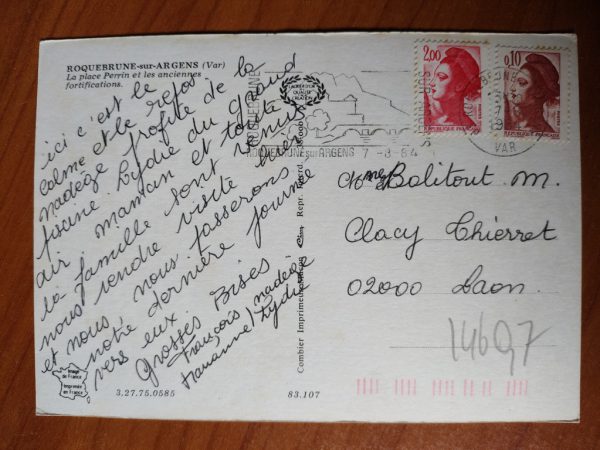 ROQUEBRUNE-sur-ARGENS (Var)
La place Perrin et les anciennes
fortifications.
ici c'est le
calme et le repos
nadège profite de la
piscine. Lydie du grand
air maman et toute
la famille sont venus
nous rendre visite hier
et nous, nous passerons
notre dernière journée
vers eux
Grosses Bises
François nadège
marianne Lydie
Image
de France
Imprimée
en France
3.27.75.0585
83.107
Combier Imprimeur Mâcon
Repr. Interd.
ROQUEBRUNE
ROQUEBRUNE sur ARGENS 7-8-84
VAR
2,00
REPUBLIQUE FRANÇAISE
0,10
REPUBLIQUE FRANÇAISE
Balitout M.
Clacy Thierret
02000 Laon